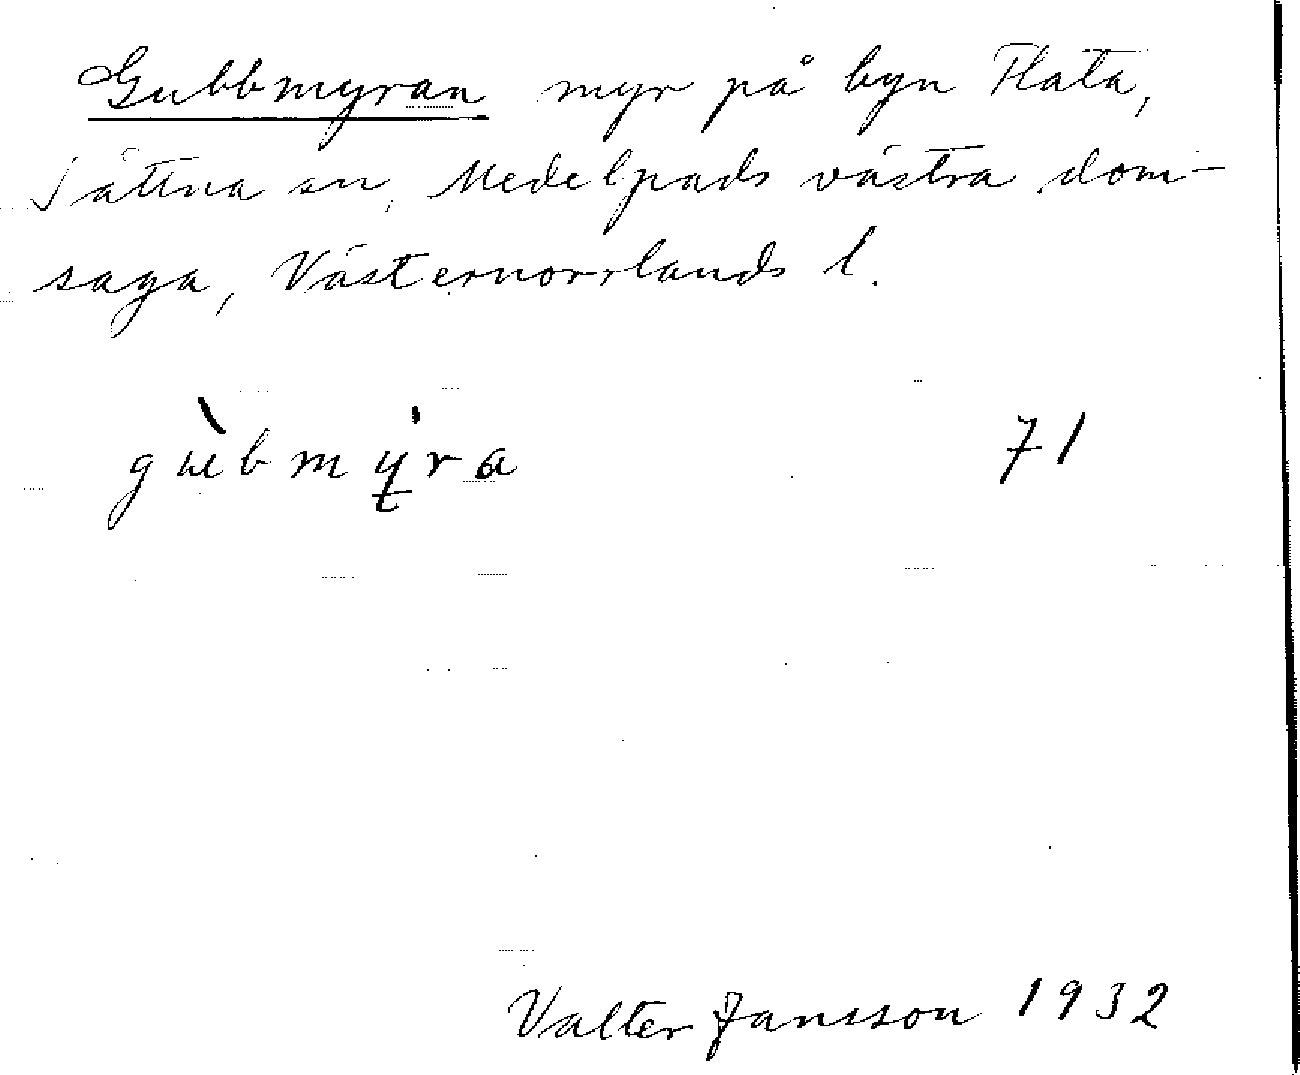 Gubbmyran myr på byn Flata,
Sättna sn, Medelpads västra dom-
saga, Västernorrlands l.
71
Valter Jansson 1932